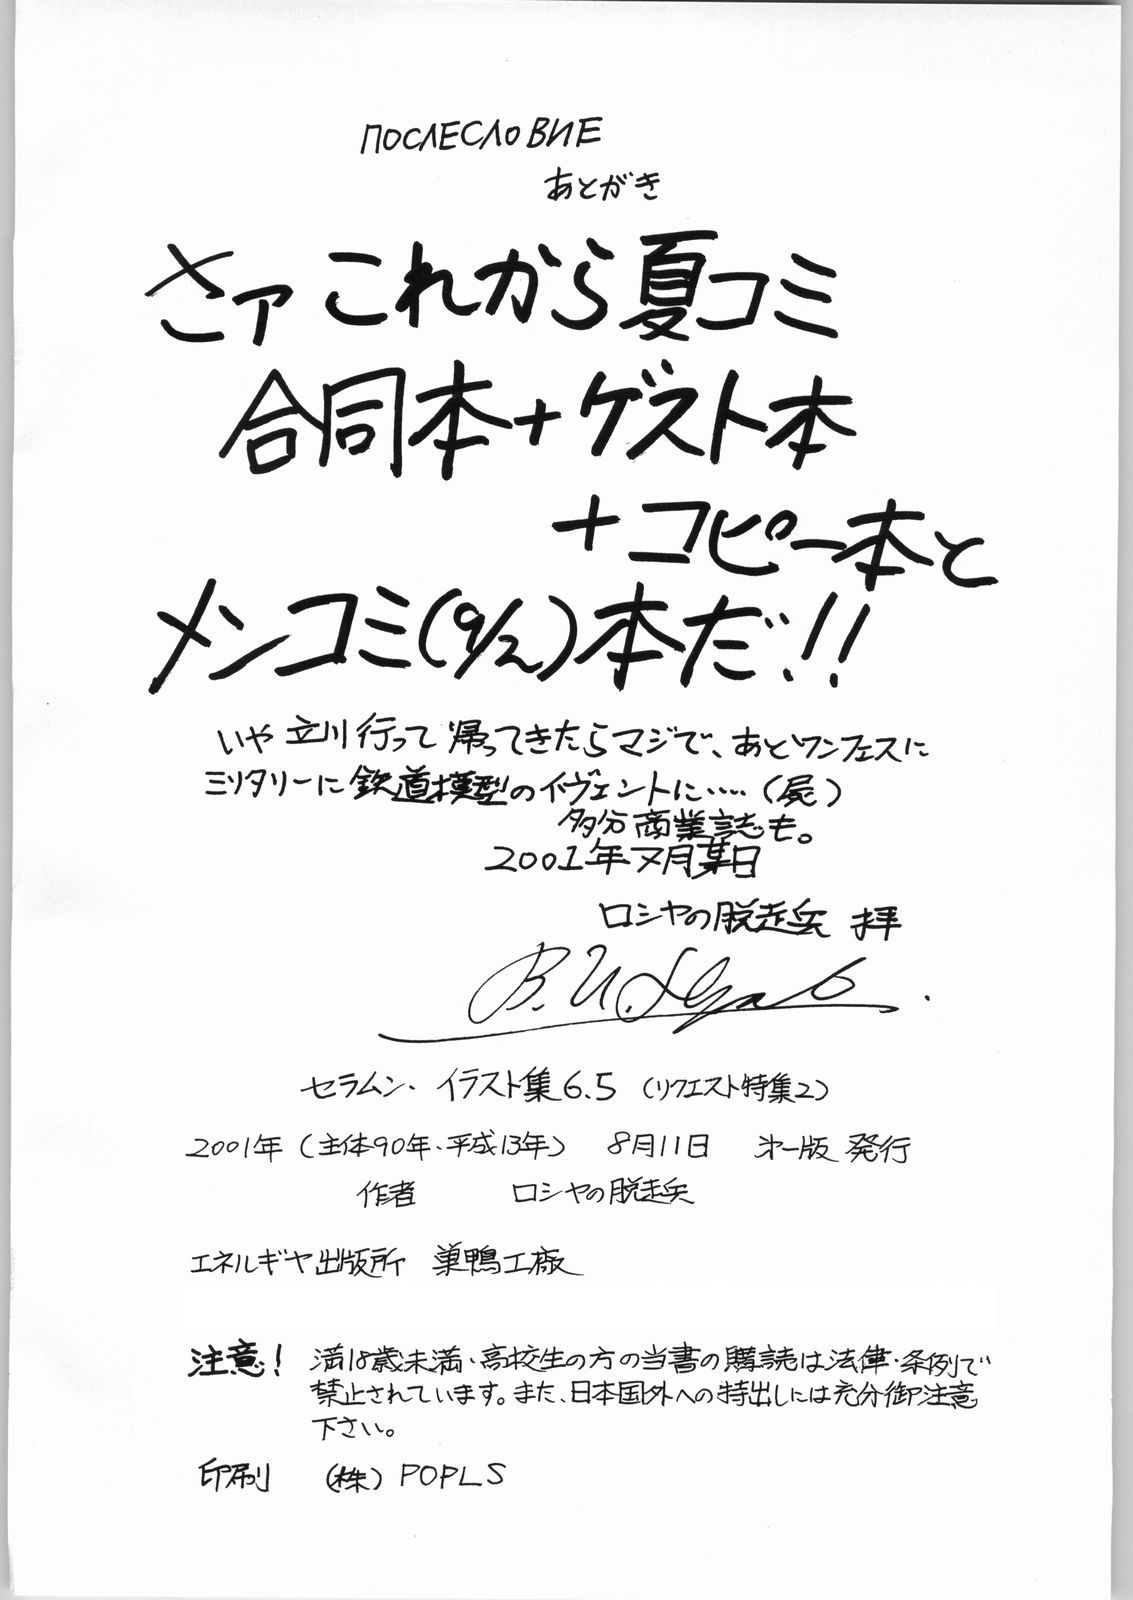 ПОСЛЕСЛОВИЕ
あとがき
さァ これから夏コミ
合同本+ゲスト本
+コピー本と
メンコミ(9/2)本だ!!
いや 立川行って 帰ってきたらマジで、あとワンフェスに
ミリタリーに鉄道模型のイヴェントに……(屍)
多分商業誌も。
2001年7月某日
ロシヤの脱走兵 拝
セラムン・イラスト集6.5 (リクエスト特集2)
2001年(主体90年・平成13年) 8月11日 第一版 発行
作者 ロシヤの脱走兵
エネルギヤ出版所 巣鴨工廠
注意! 満18歳未満・高校生の方の当書の購読は法律・条例で
禁止されています。また、日本国外への持出しには充分御注意
下さい。
印刷 (株) POPLS